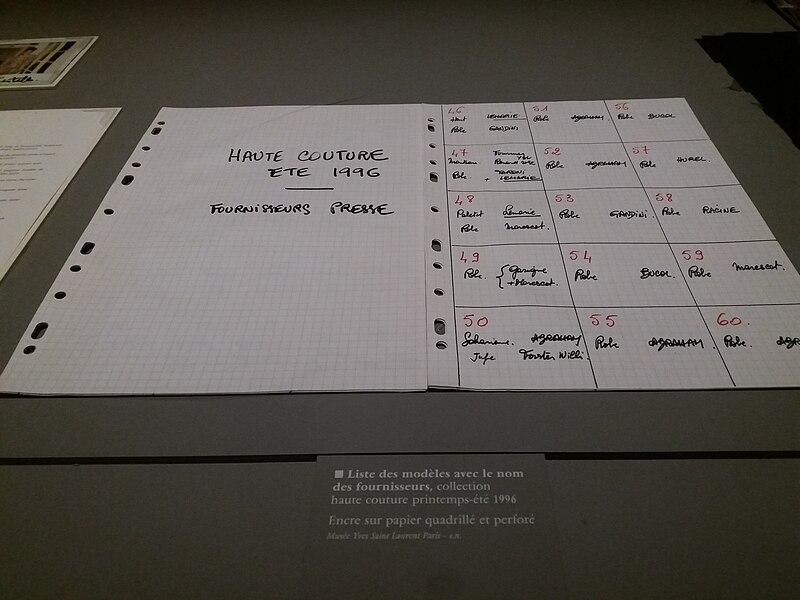 HAUTE COUTURE
ETE 1996
FOURNISSEURS PRESSE
46
Haut LEMARIE
Robe GANDINI
51
Robe ABRAHAM
56
Robe BUCOL
47
Robe. + TARONI
LEMARIE
52
Robe ABRAHAM
57
Robe HUREL.
48
Paletot Lemarié
Robe Marescot.
53
Robe GANDINI.
58
Robe RACINE
49
Robe. Garigue
+ Marescot.
54
Robe BUCOL
59
Robe Marescot.
50
Saharienne. ABRAHAM
Jupe Forster Willi.
55
Robe ABRAHAM.
60.
Robe. ABR
■ Liste des modèles avec le nom
des fournisseurs, collection
haute couture printemps-été 1996
Encre sur papier quadrillé et perforé
Musée Yves Saint Laurent Paris - s.n.